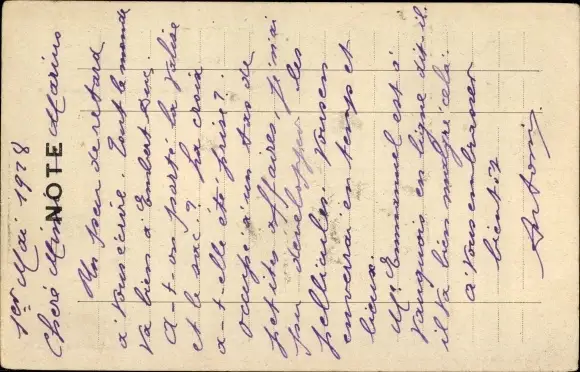 1er Mai 1928
NOTE
Chère Mimi Marius
Un peu de retard
à vous écrire. Tout le monde
va bien à Embertrui.
A-t-on porté la valise
et le sac? La croix
a-t-elle été prise?
occupé à un tas de
petites affaires, je n'ai
pu développer les
pellicules. Vous en
enverrai en temps et
lieux.
Mr Emmanuel est à
Vauquois en ligne dit-il.
il va bien malgré cela.
à vous embrasser
bientôt
Antonin